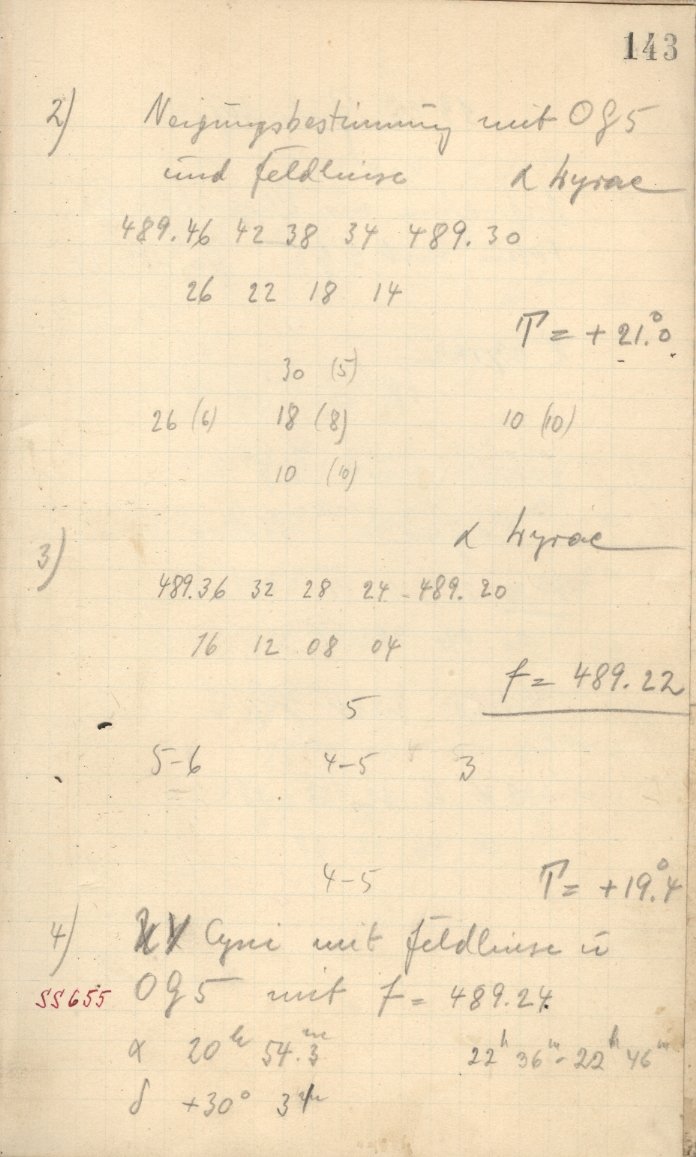 143
2) Neigungsbestimmung mit OG5
und Feldlinse α Lyrae
489.46 42 38 34 489.30
26 22 18 14
T = +21.°0
30 (5)
26 (6) 18 (8) 10 (10)
10 (10)
3) α Lyrae
489.36 32 28 24 - 489.20
16 12 08 04
f = 489.22
5
5-6 4-5 3
4-5 T = +19.°4
4) Cygni mit Feldlinse u
SS655 OG5 mit f = 489.24
α 20h 54.m3 22h 36m - 22h 46m
δ +30°